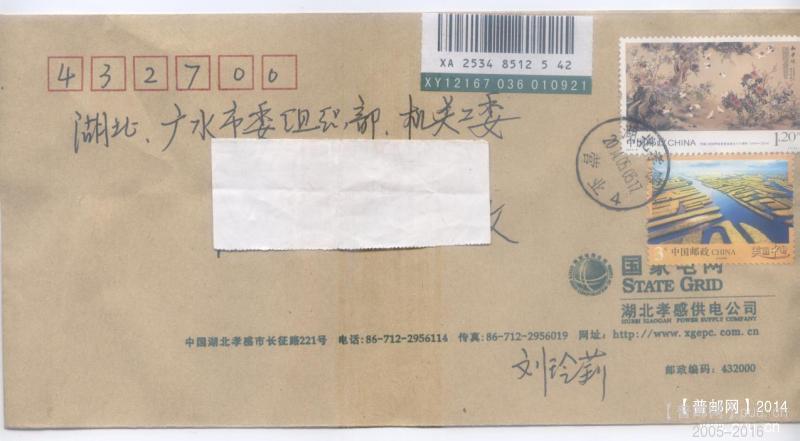 XA 2534 8512 5 42
XY12167 036 010921
432700
湖北、广水市委组织部、机关工委
文
中国邮政 CHINA
1.20
中国邮政 CHINA
3
美丽中国
国家电网
STATE GRID
湖北孝感供电公司
HUBEI XIAOGAN POWER SUPPLY COMPANY
中国湖北孝感市长征路221号 电话:86-712-2956114 传真:86-712-2956019 网址:http://www.xgepc.com.cn
刘玲莉
邮政编码:432000
【普邮网】2014
2005-2016